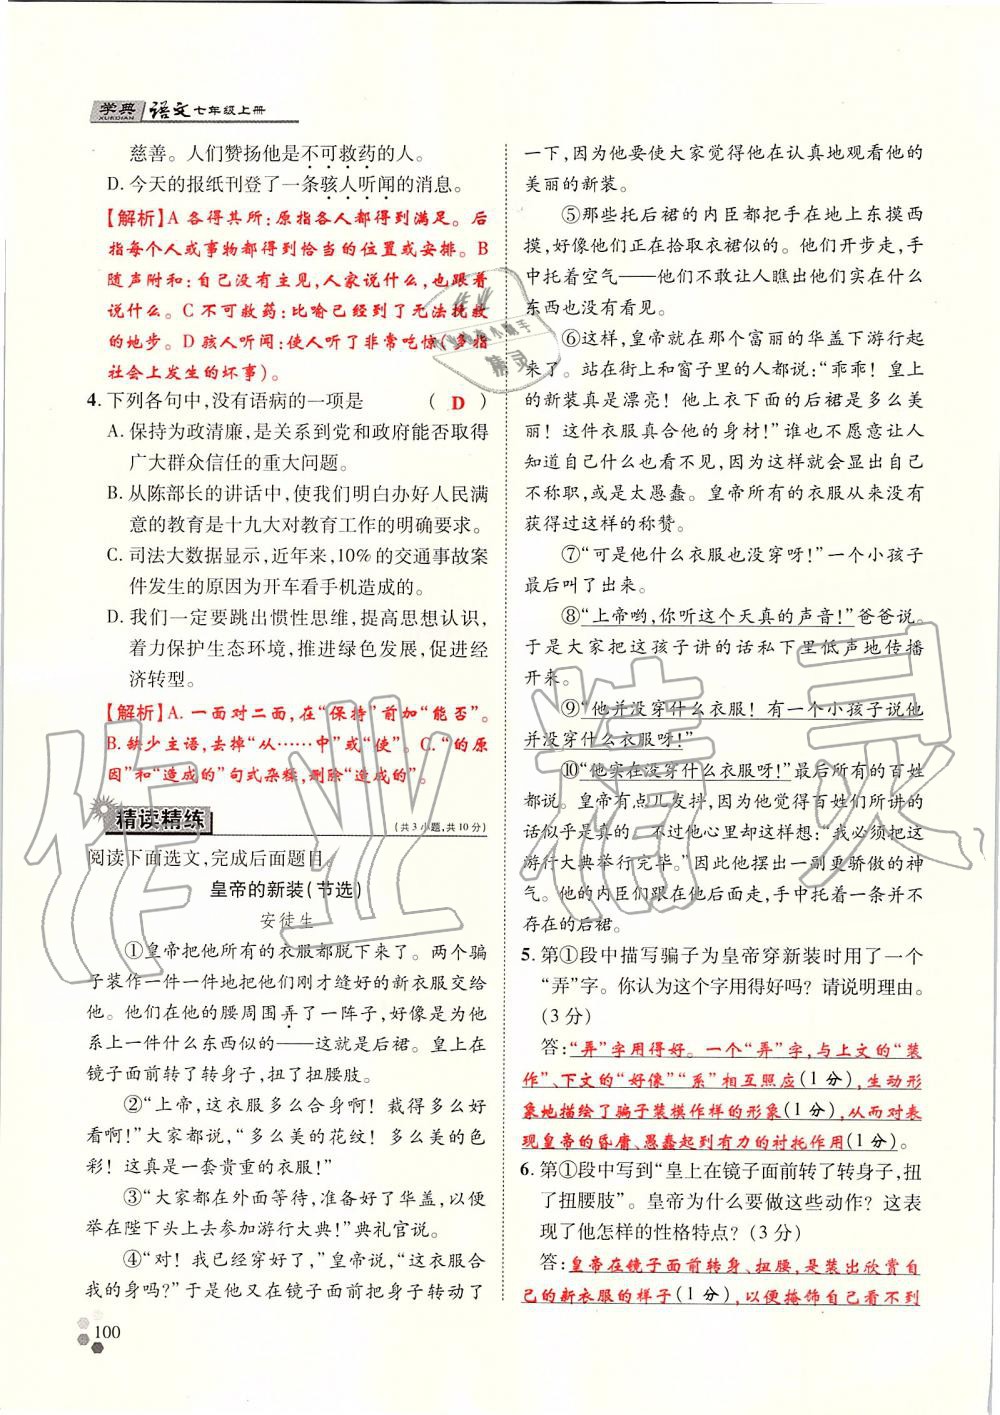 学典 XUEDIAN 语文 七年级上册
慈善。人们赞扬他是不可救药的人。
D. 今天的报纸刊登了一条骇人听闻的消息。
【解析】A 各得其所：原指各人都得到满足。后
指每个人或事物都得到恰当的位置或安排。B
随声附和：自己没有主见，人家说什么，也跟着
说什么。C 不可救药：比喻已经到了无法挽救
的地步。D 骇人听闻：使人听了非常吃惊（多指
社会上发生的坏事）。
4. 下列各句中，没有语病的一项是 （ D ）
A. 保持为政清廉，是关系到党和政府能否取得
广大群众信任的重大问题。
B. 从陈部长的讲话中，使我们明白办好人民满
意的教育是十九大对教育工作的明确要求。
C. 司法大数据显示，近年来，10%的交通事故案
件发生的原因为开车看手机造成的。
D. 我们一定要跳出惯性思维，提高思想认识，
着力保护生态环境，推进绿色发展，促进经
济转型。
【解析】A. 一面对二面，在“保持”前加“能否”。
B. 缺少主语，去掉“从……中”或“使”。C. “的原
因”和“造成的”句式杂糅，删除“造成的”。
精读精练 （共3小题，共10分）
阅读下面选文，完成后面题目。
皇帝的新装（节选）
安徒生
①皇帝把他所有的衣服都脱下来了。两个骗
子装作一件一件地把他们刚才缝好的新衣服交给
他。他们在他的腰周围弄了一阵子，好像是为他
系上一件什么东西似的——这就是后裙。皇上在
镜子面前转了转身子，扭了扭腰肢。
②“上帝，这衣服多么合身啊！裁得多么好
看啊！”大家都说，“多么美的花纹！多么美的色
彩！这真是一套贵重的衣服！”
③“大家都在外面等待，准备好了华盖，以便
举在陛下头上去参加游行大典！”典礼官说。
④“对！我已经穿好了，”皇帝说，“这衣服合
我的身吗？”于是他又在镜子面前把身子转动了
100
一下，因为他要使大家觉得他在认真地观看他的
美丽的新装。
⑤那些托后裙的内臣都把手在地上东摸西
摸，好像他们正在拾取衣裙似的。他们开步走，手
中托着空气——他们不敢让人瞧出他们实在什么
东西也没有看见。
⑥这样，皇帝就在那个富丽的华盖下游行起
来了。站在街上和窗子里的人都说：“乖乖！皇上
的新装真是漂亮！他上衣下面的后裙是多么美
丽！这件衣服真合他的身材！”谁也不愿意让人
知道自己什么也看不见，因为这样就会显出自己
不称职，或是太愚蠢。皇帝所有的衣服从来没有
获得过这样的称赞。
⑦“可是他什么衣服也没穿呀！”一个小孩子
最后叫了出来。
⑧“上帝哟，你听这个天真的声音！”爸爸说。
于是大家把这孩子讲的话私下里低声地传播
开来。
⑨“他并没穿什么衣服！有一个小孩子说他
并没穿什么衣服呀！”
⑩“他实在没穿什么衣服呀！”最后所有的百姓
都说。皇帝有点儿发抖，因为他觉得百姓们所讲的
话似乎是真的。不过他心里却这样想：“我必须把这
游行大典举行完毕。”因此他摆出一副更骄傲的神
气。他的内臣们跟在他后面走，手中托着一条并不
存在的后裙。
5. 第①段中描写骗子为皇帝穿新装时用了一个
“弄”字。你认为这个字用得好吗？请说明理由。
（3分）
答：“弄”字用得好。一个“弄”字，与上文的“装
作”、下文的“好像”“系”相互照应（1分），生动形
象地描绘了骗子装模作样的形象（1分），从而对表
现皇帝的昏庸、愚蠢起到有力的衬托作用（1分）。
6. 第①段中写到“皇上在镜子面前转了转身子，扭
了扭腰肢”。皇帝为什么要做这些动作？这表
现了他怎样的性格特点？（3分）
答：皇帝在镜子面前转身、扭腰，是装出欣赏自
己的新衣服的样子（1分），以便掩饰自己看不到
作业精灵